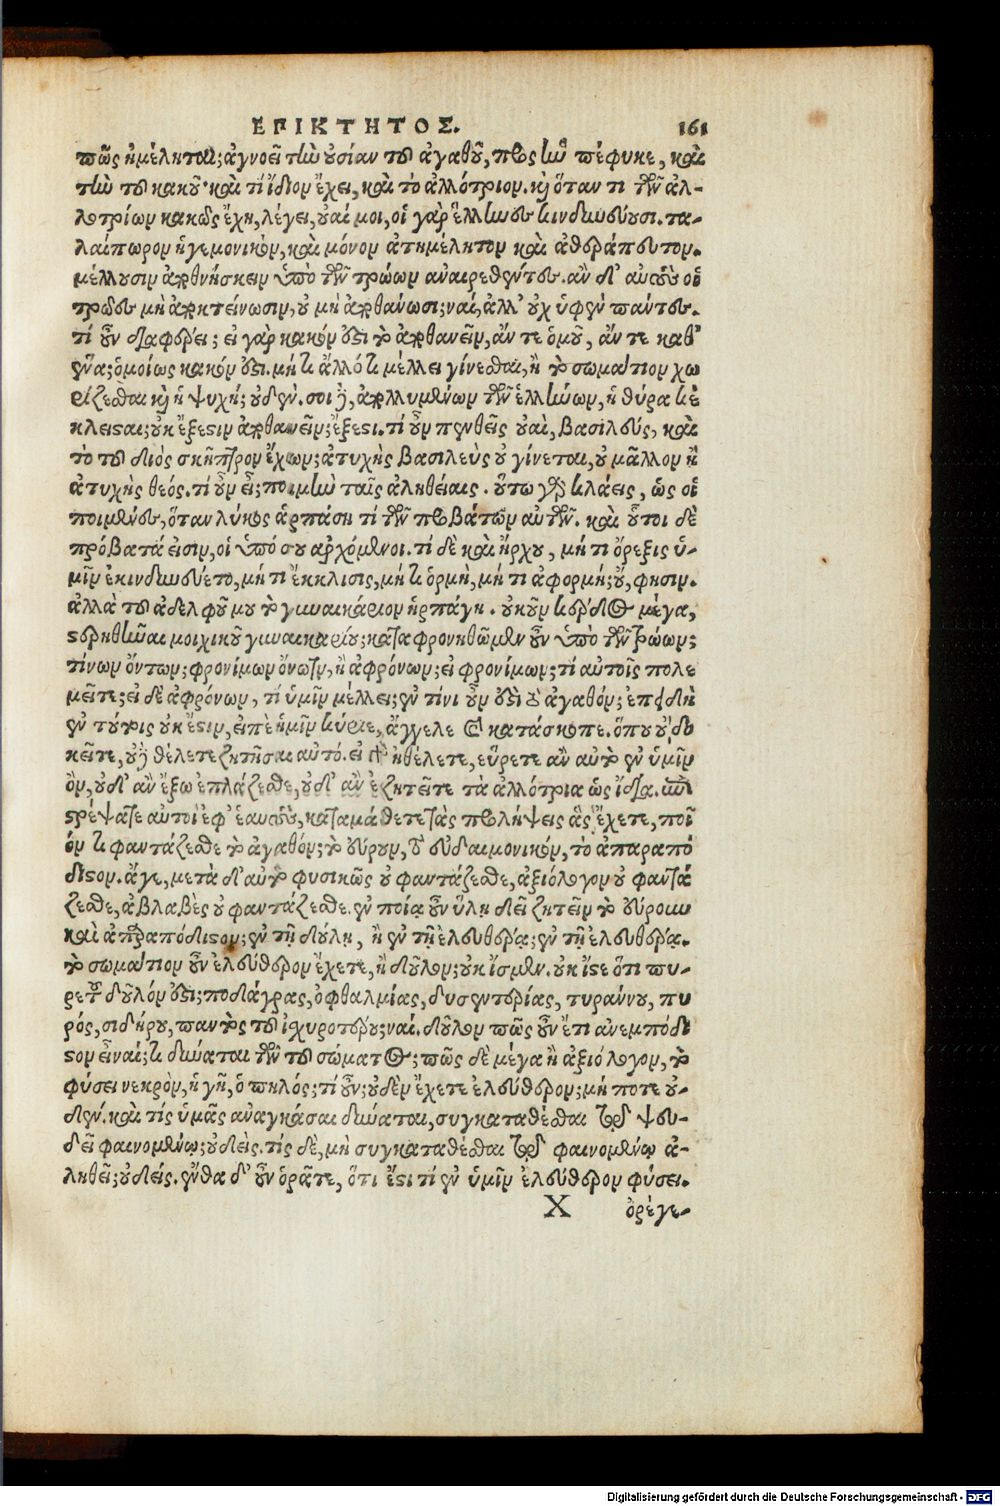 ΕΠΙΚΤΗΤΟΣ. 161
πῶς ἠμέληται; ἀγνοεῖ τὴν οὐσίαν τοῦ ἀγαθοῦ, πρὸς ἣν πέφυκε, καὶ
τὴν τοῦ κακοῦ· καὶ τί ἴδιον ἔχει, καὶ τὸ ἀλλότριον. κὶ ὅταν τι τῶν ἀλ-
λοτρίων κακῶς ἔχῃ, λέγει, οὐαί μοι, οἱ γὰρ ἕλληνες κινδυνεύουσι. τα-
λαίπωρον ἡγεμονικὸν, καὶ μόνον ἀτημέλητον καὶ ἀθεράπευτον.
μέλλουσιν ἀποθνήσκειν ὑπὸ τῶν τρώων ἀναιρεθέντες. ἂν δ' αὐτοὺς οἱ
τρῶες μὴ ἀποκτείνωσιν, οὐ μὴ ἀποθάνωσι; ναί, ἀλλ' οὐχ ὑφ' ἓν πάντες.
τί οὖν διαφέρει; εἰ γὰρ κακόν ἐστι τὸ ἀποθανεῖν, ἄν τε ὁμοῦ, ἄν τε καθ'
ἕνα; ὁμοίως κακόν ἐστι. μή τι ἄλλό τι μέλλει γίνεσθαι, ἢ τὸ σωμάτιον χω
ρίζεσθαι κὶ ἡ ψυχή; οὐδέν. σοὶ δὲ, ἀπολλυμένων τῶν ἑλλήνων, ἡ θύρα κέ
κλεισαι; οὐκ ἔξεστιν ἀποθανεῖν; ἔξεστι. τί οὖν πενθεῖς οὐαὶ, βασιλεύς, καὶ
τὸ τοῦ διὸς σκῆπτρον ἔχων; ἀτυχὴς βασιλεὺς οὐ γίνεται, οὐ μᾶλλον ἢ
ἀτυχὴς θεός. τί οὖν εἶ; ποιμὴν ταῖς ἀληθείαις. οὕτω γὰρ κλάεις, ὡς οἱ
ποιμένες, ὅταν λύκος ἁρπάσῃ τί τῶν προβάτων αὐτῶν. καὶ οὗτοι δὲ
πρόβατά εἰσιν, οἱ ὑπό σου ἀρχόμενοι. τί δὲ καὶ ἤρχου, μή τι ὄρεξις ὑ-
μῖν ἐκινδυνεύετο, μή τι ἔκκλισις, μή τι ὁρμὴ, μή τι ἀφορμή; οὔ, φησιν.
ἀλλὰ τοῦ ἀδελφοῦ μου τὸ γυναικάριον ἡρπάγη. οὐκοῦν κέρδος μέγα,
στερηθῆναι μοιχικοῦ γυναικαρίου; καταφρονηθῶμεν οὖν ὑπὸ τῶν τρώων;
τίνων ὄντων; φρονίμων ὄντων, ἢ ἀφρόνων; εἰ φρονίμων; τί αὐτοῖς πολε
μεῖτε; εἰ δὲ ἀφρόνων, τί ὑμῖν μέλλει; ἐν τίνι οὖν ἐστὶ τὸ ἀγαθόν; ἐπειδὴ
ἐν τούτοις οὐκ ἔστιν, εἰπὲ ἡμῖν κύριε, ἄγγελε καὶ κατάσκοπε. ὅπου οὐ δο
κεῖτε, οὐδὲ θέλετε ζητῆσαι αὐτό. εἰ γὰρ ἠθέλετε, εὕρετε ἂν αὐτὸ ἐν ὑμῖν
ὂν, οὐδ' ἂν ἔξω ἐπλάζεσθε, οὐδ' ἂν ἐζητεῖτε τὰ ἀλλότρια ὡς ἴδια. ἐπι
στρέψατε αὐτοὶ ἐφ' ἑαυτοὺς, καταμάθετε τὰς προλήψεις ἃς ἔχετε, ποῖ
όν τι φαντάζεσθε τὸ ἀγαθόν; τὸ εὔρουν, τὸ εὐδαιμονικόν, τὸ ἀπαραπό
διστον. ἄγε, μετὰ δ' αὐτὸ φυσικῶς οὐ φαντάζεσθε, ἀξιόλογον οὐ φαντά
ζεσθε, ἀβλαβὲς οὐ φαντάζεσθε. ἐν ποίᾳ οὖν ὕλῃ δεῖ ζητεῖν τὸ εὔρουν
καὶ ἀπαραπόδιστον; ἐν τῇ δούλῃ, ἢ ἐν τῇ ἐλευθέρᾳ; ἐν τῇ ἐλευθέρᾳ.
τὸ σωμάτιον οὖν ἐλεύθερον ἔχετε, ἢ δοῦλον; οὐκ ἴσμεν. οὐκ ἴστε ὅτι πυ-
ρετοῦ δοῦλόν ἐστι; ποδάγρας, ὀφθαλμίας, δυσεντερίας, τυράννου, πυ
ρός, σιδήρου, παντὸς τοῦ ἰσχυροτέρου; ναί. δοῦλον πῶς οὖν ἔτι ἀνεμπόδι
στον εἶναί; τι δύναται τῶν τοῦ σώματος; πῶς δὲ μέγα ἢ ἀξιόλογον, τὸ
φύσει νεκρὸν, ἡ γῆ, ὁ πηλός; τί οὖν; οὐδὲν ἔχετε ἐλεύθερον; μή ποτε οὐ-
δέν. καὶ τίς ὑμᾶς ἀναγκάσαι δύναται, συγκαταθέσθαι τῷ ψευ-
δεῖ φαινομένῳ; οὐδείς. τίς δὲ, μὴ συγκαταθέσθαι τῷ φαινομένῳ ἀ-
ληθεῖ; οὐδείς. ἐνθάδ' οὖν ὁρᾶτε, ὅτι ἔστι τί ἐν ὑμῖν ἐλεύθερον φύσει.
X ὀρέγε-
Digitalisierung gefördert durch die Deutsche Forschungsgemeinschaft - DFG